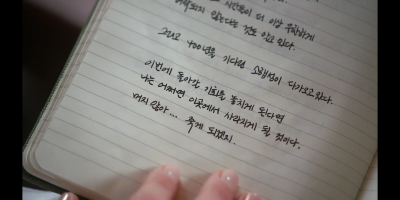 시간들이 더 이상 유효하게
허락되지 않는다는 것도 알고 있다.
그리고 400년을 기다린 혜성이 다가오고 있다.
이번에 돌아갈 기회를 놓치게 된다면
나는 어쩌면 이곳에서 사라지게 될 것이다.
머지 않아... 죽게 되겠지.